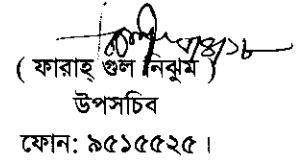 ( ফারাহ্ গুল নিঝুম )
উপসচিব
ফোন: ৯৫১৫৫২৫।